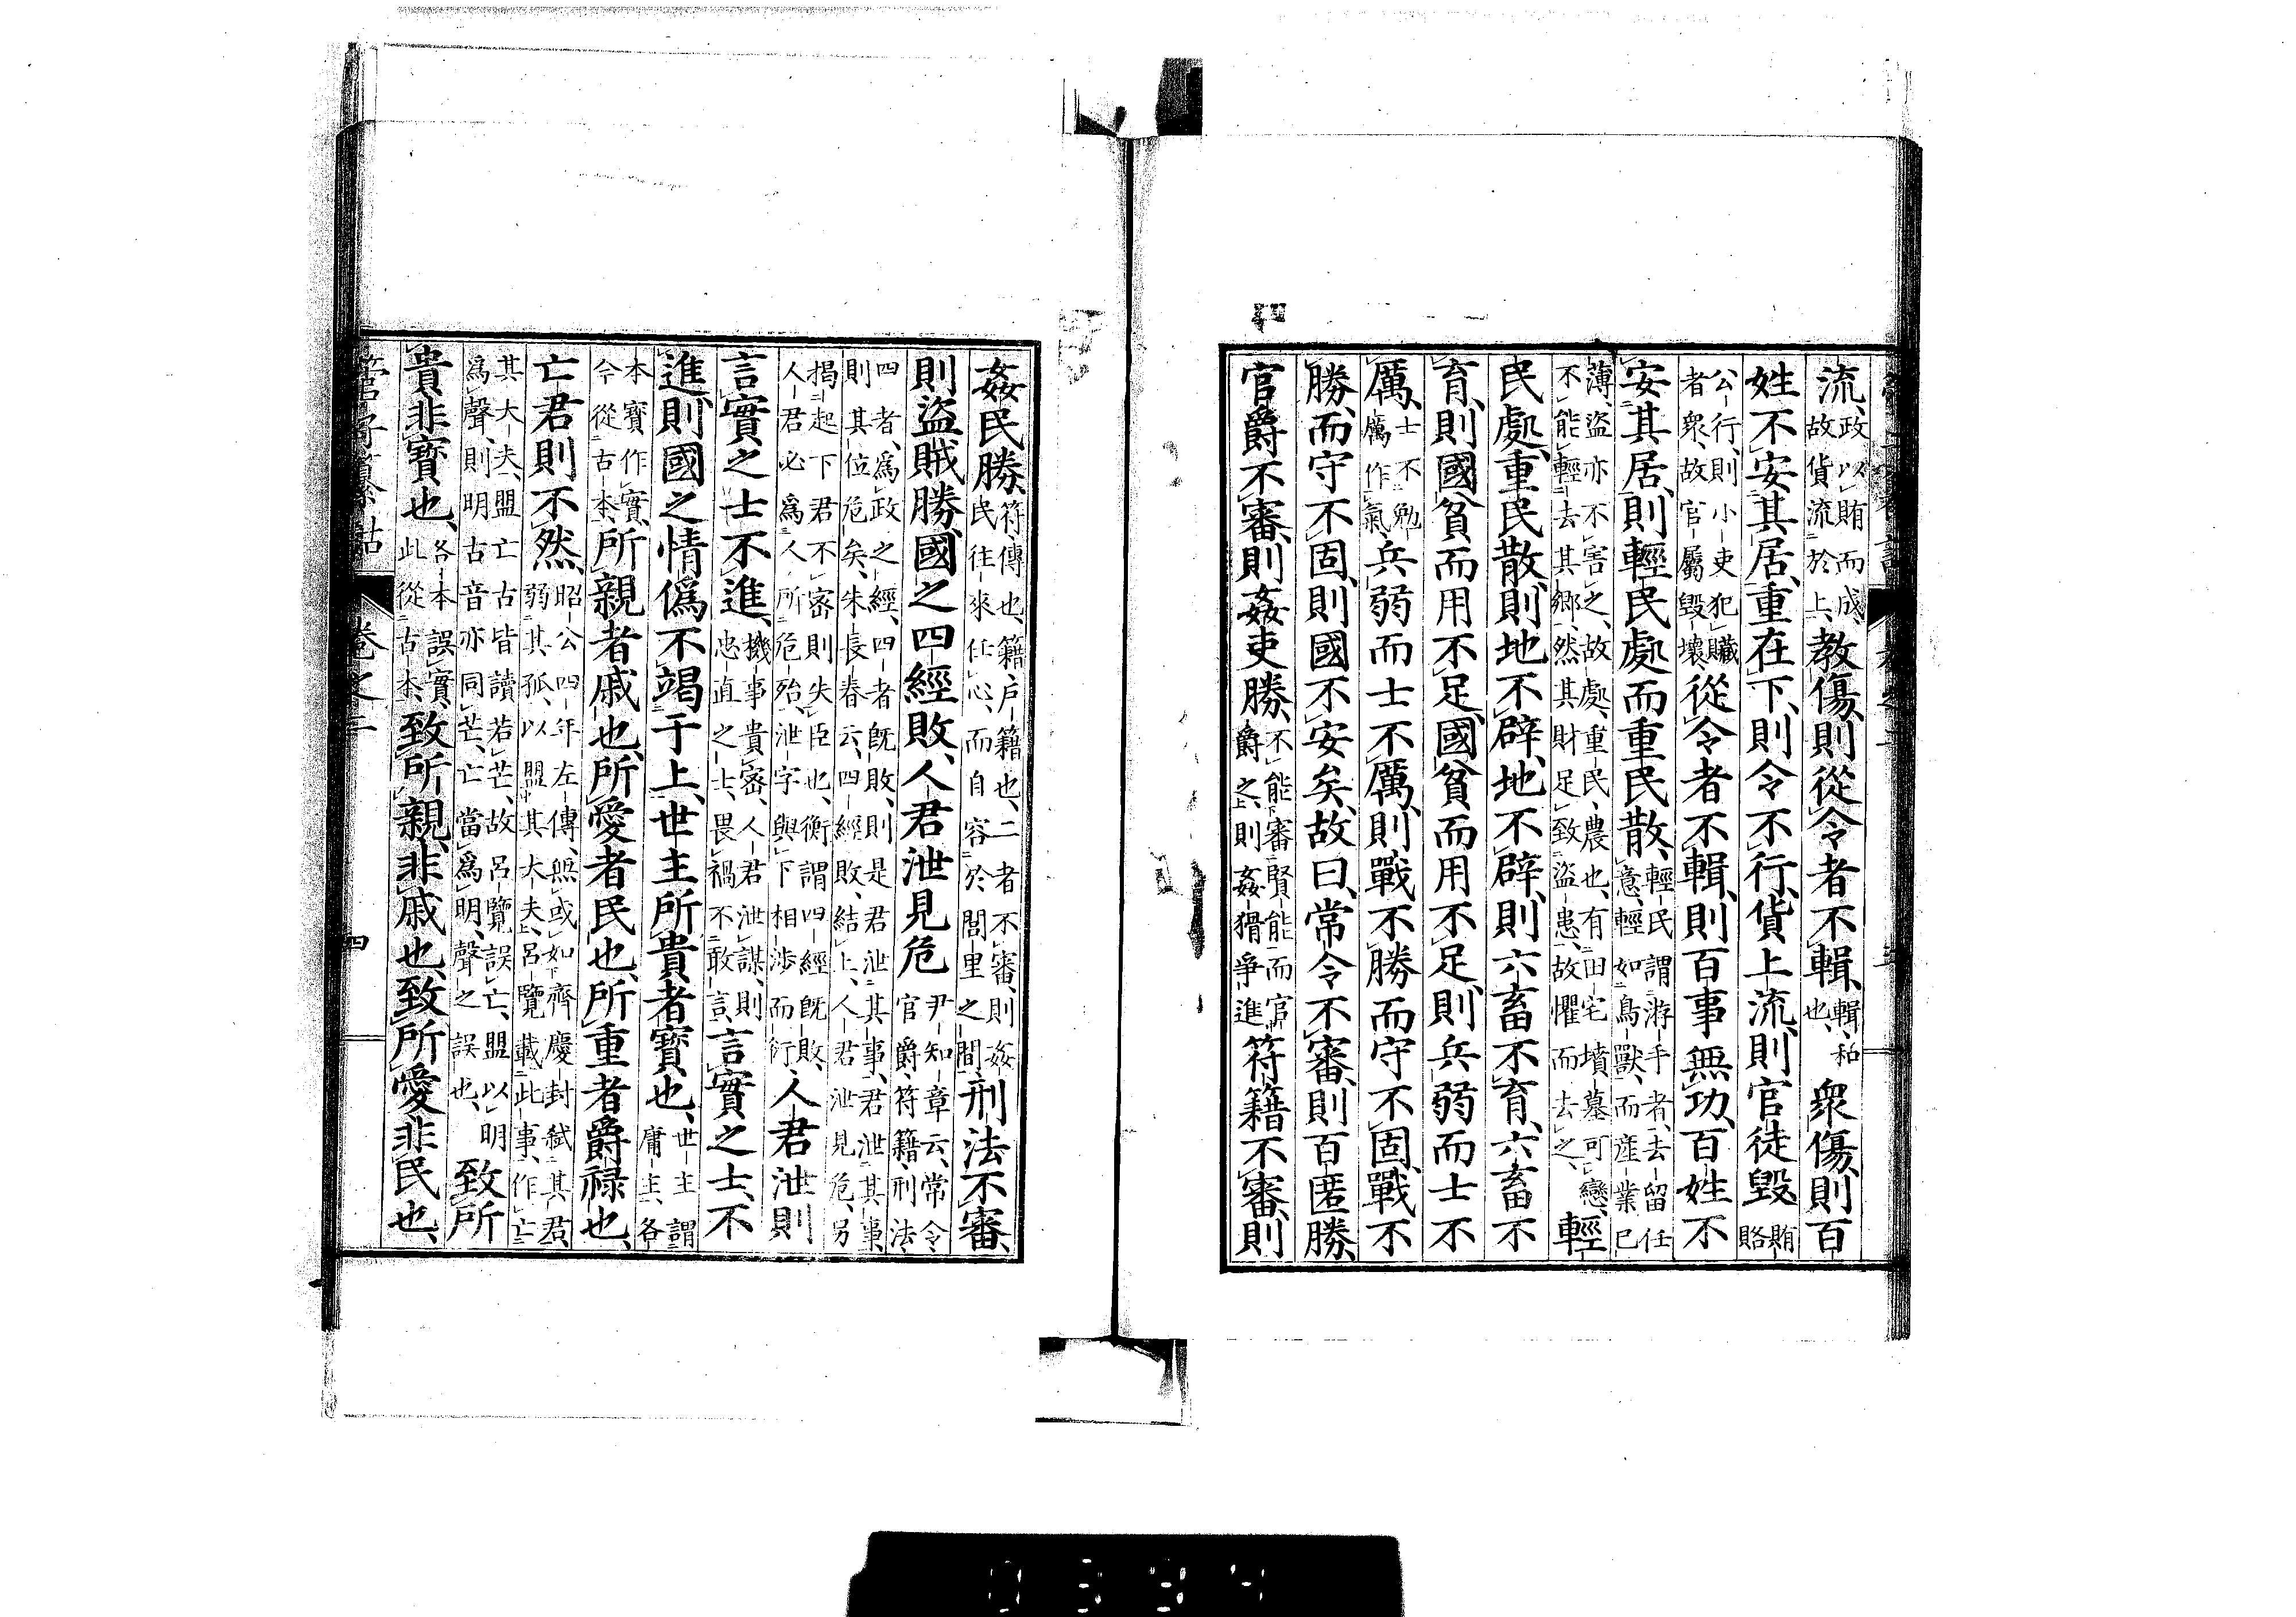 流、政以賄而成、故貨流於上、教傷、則從令者不輯、輯、和也、衆傷、則百
姓不安其居、重在下、則令不行、貨上流、則官徒毀、賄賂
公行、則小吏犯贓者衆、故官屬毀壞、從令者不輯、則百事無功、百姓不
安其居、則輕民處而重民散、輕民謂游手者、去留任意、輕如鳥獸、而産業已
薄、盜亦不害之、故處、重民、農也、有田宅墳墓可戀、不能輕去其鄉、然其財足致盜患、故懼而去之、輕
民處、重民散、則地不辟、地不辟、則六畜不育、六畜不
育、則國貧而用不足、國貧而用不足、則兵弱而士不
厲、士不勉厲作氣、兵弱而士不厲、則戰不勝而守不固、戰不
勝、而守不固、則國不安矣、故曰、常令不審、則百匿勝、
官爵不審、則姦吏勝、不能審賢能而官爵之、則姦猾爭進、符籍不審、則
姦民勝、符、傳也、籍、戶籍也、二者不審、則姦民往來任心、而自容於閭里之間、刑法不審、
則盜賊勝、國之四經敗、人君泄見危、尹知章云、常令官爵、符籍、刑法、
四者、為政之經、四者既敗、則是君泄其事、君泄其事、則其位危矣、朱長春云、四經敗、結上、人君泄見危、另
揭起下君不密則失臣也、衡謂四經既敗、人君必為人所危殆、泄字與下相涉而衍、人君泄則
言實之士不進、機事貴密、人君泄謀、則忠直之士、畏禍不敢言、言實之士、不
進、則國之情僞不竭于上、世主所貴者寶也、世主謂庸主、各
本寶作實、今從古本、所親者戚也、所愛者民也、所重者爵祿也、
亡君則不然、昭公四年左傳、無或如齊慶封弑其君、弱其孤、以盟其大夫、呂覽載此事、作亡
其大夫、盟亡古皆讀若芒、故呂覽誤亡、盟以明為聲、則明古音亦同芒、亡當為明、聲之誤也、致所
貴、非寶也、各本誤實、此從古本、致所親、非戚也、致所愛、非民也、
管子纂詁
卷之二
四